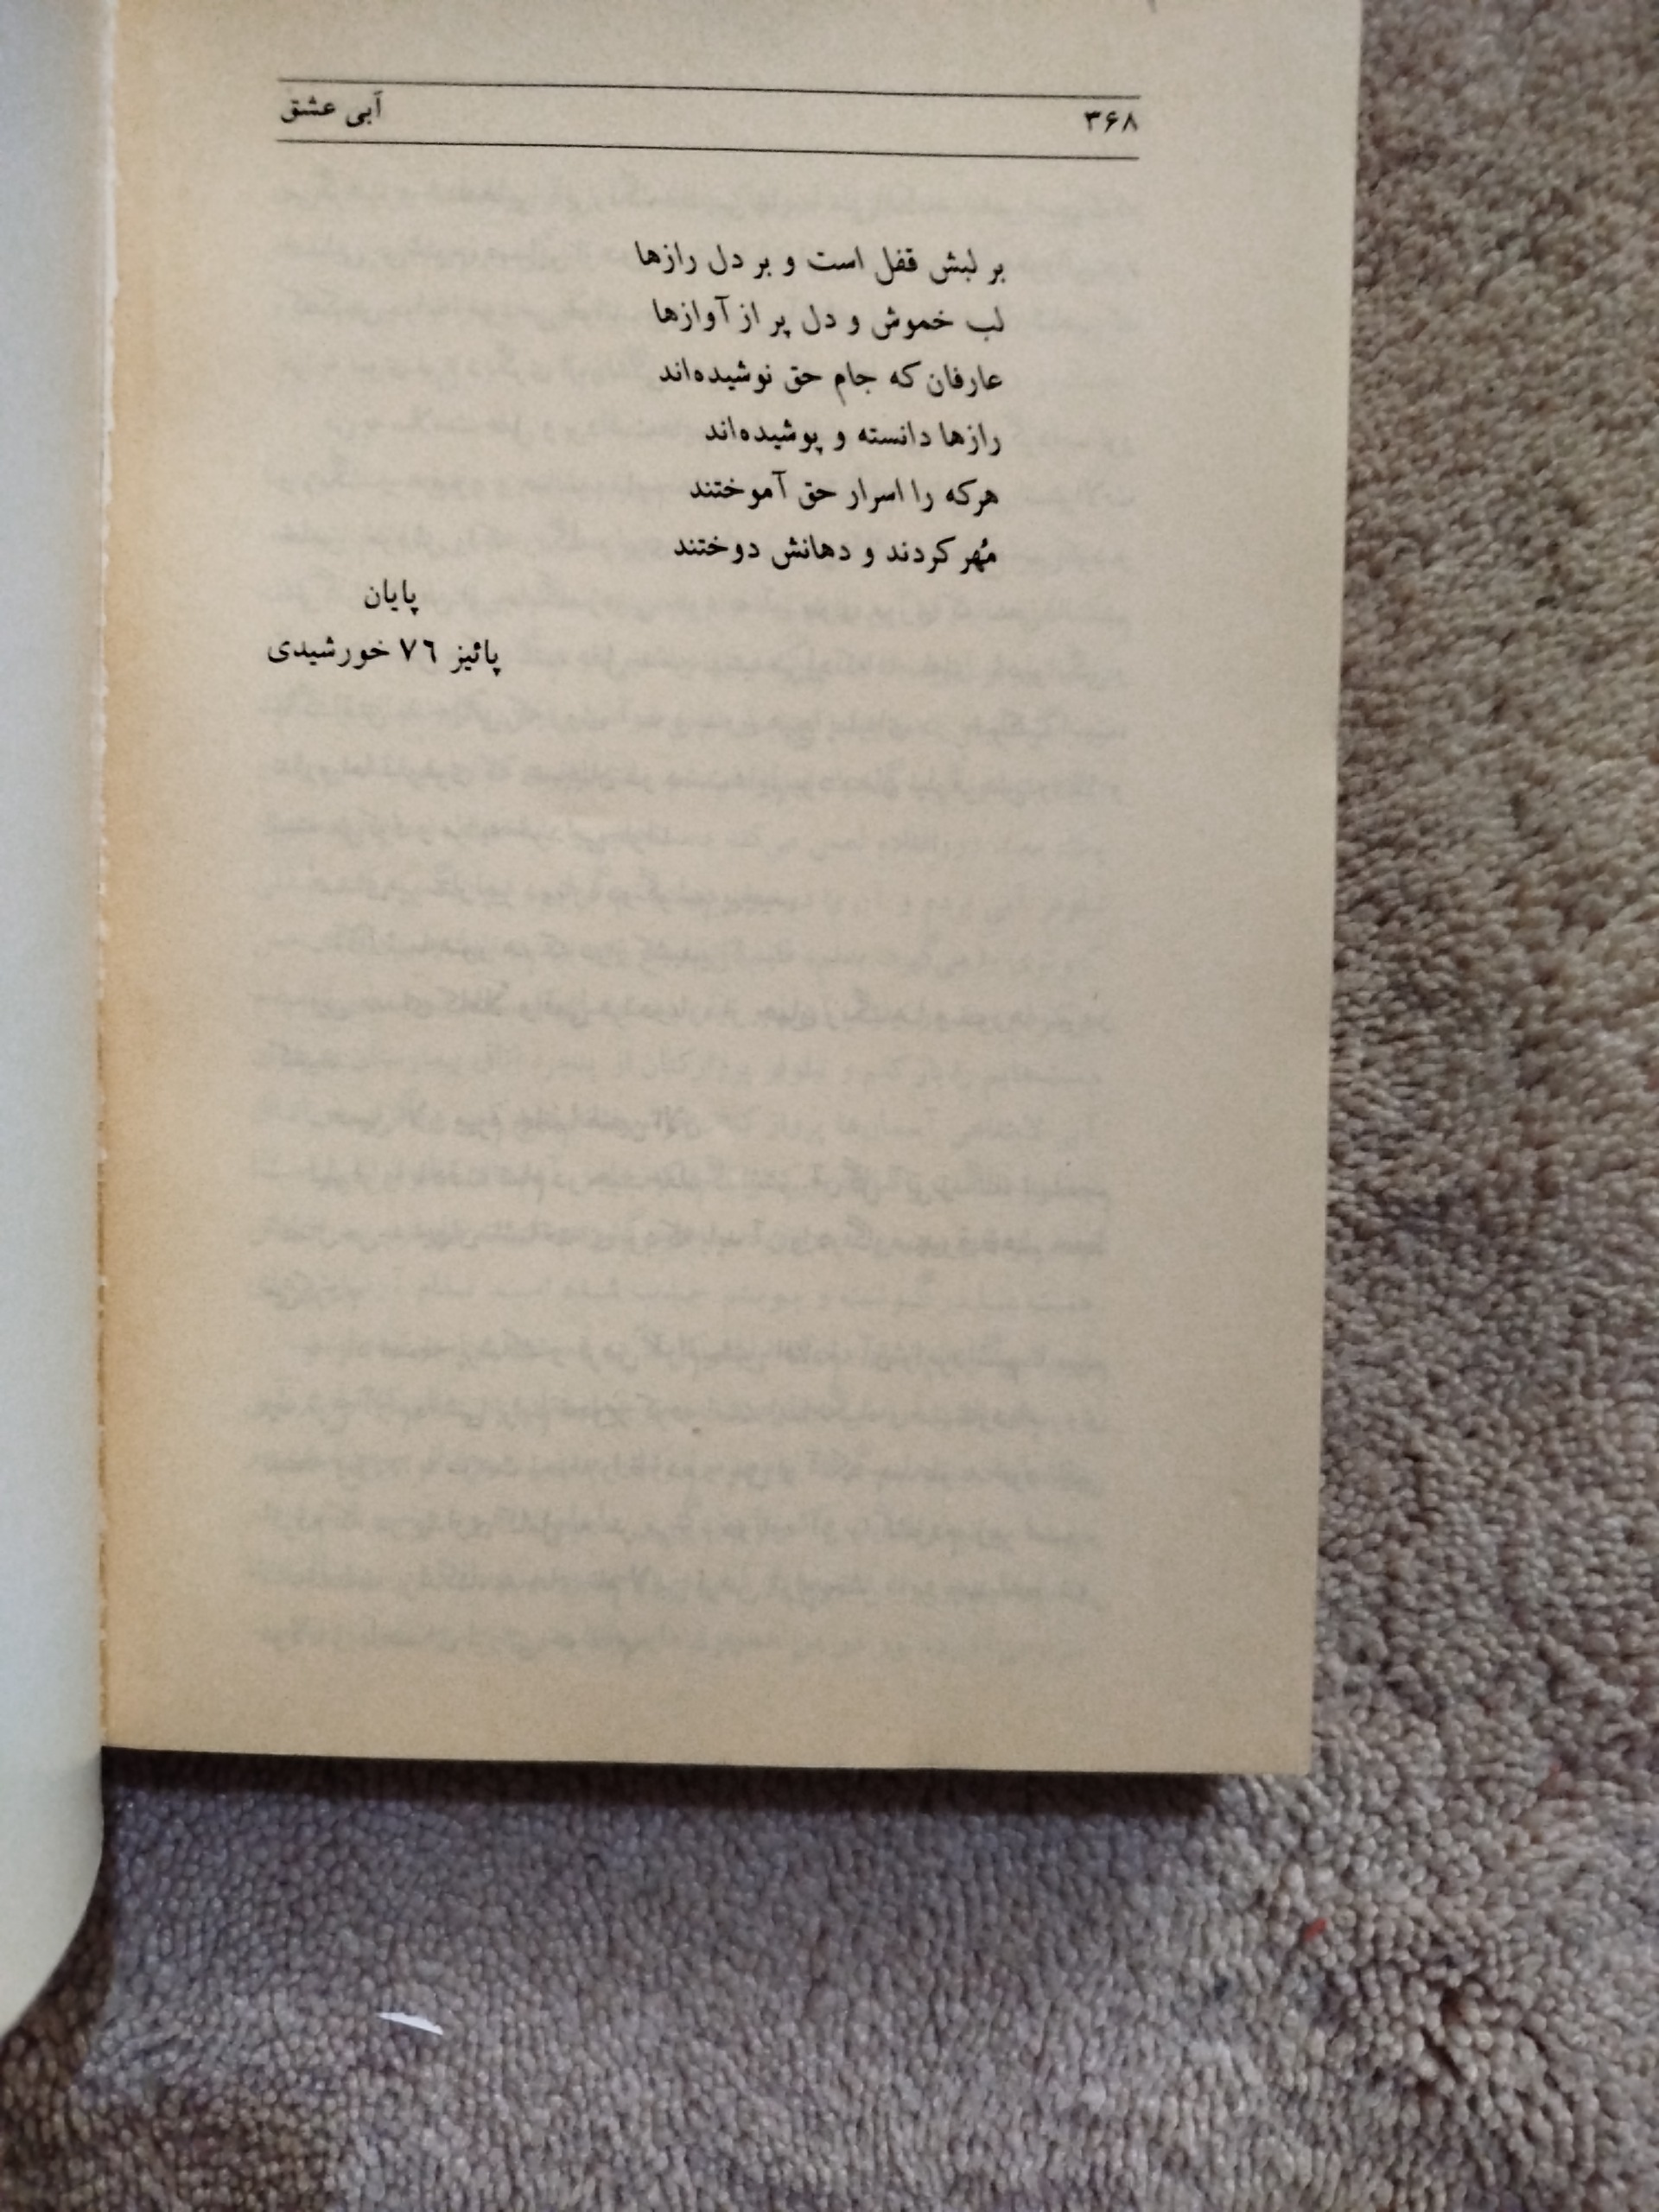 ۳۶۸ آبی عشق
بر لبش قفل است و بر دل رازها
لب خموش و دل پر از آوازها
عارفان که جام حق نوشیده‌اند
رازها دانسته و پوشیده‌اند
هرکه را اسرار حق آموختند
مُهر کردند و دهانش دوختند
پایان
پائیز ۷٦ خورشیدی